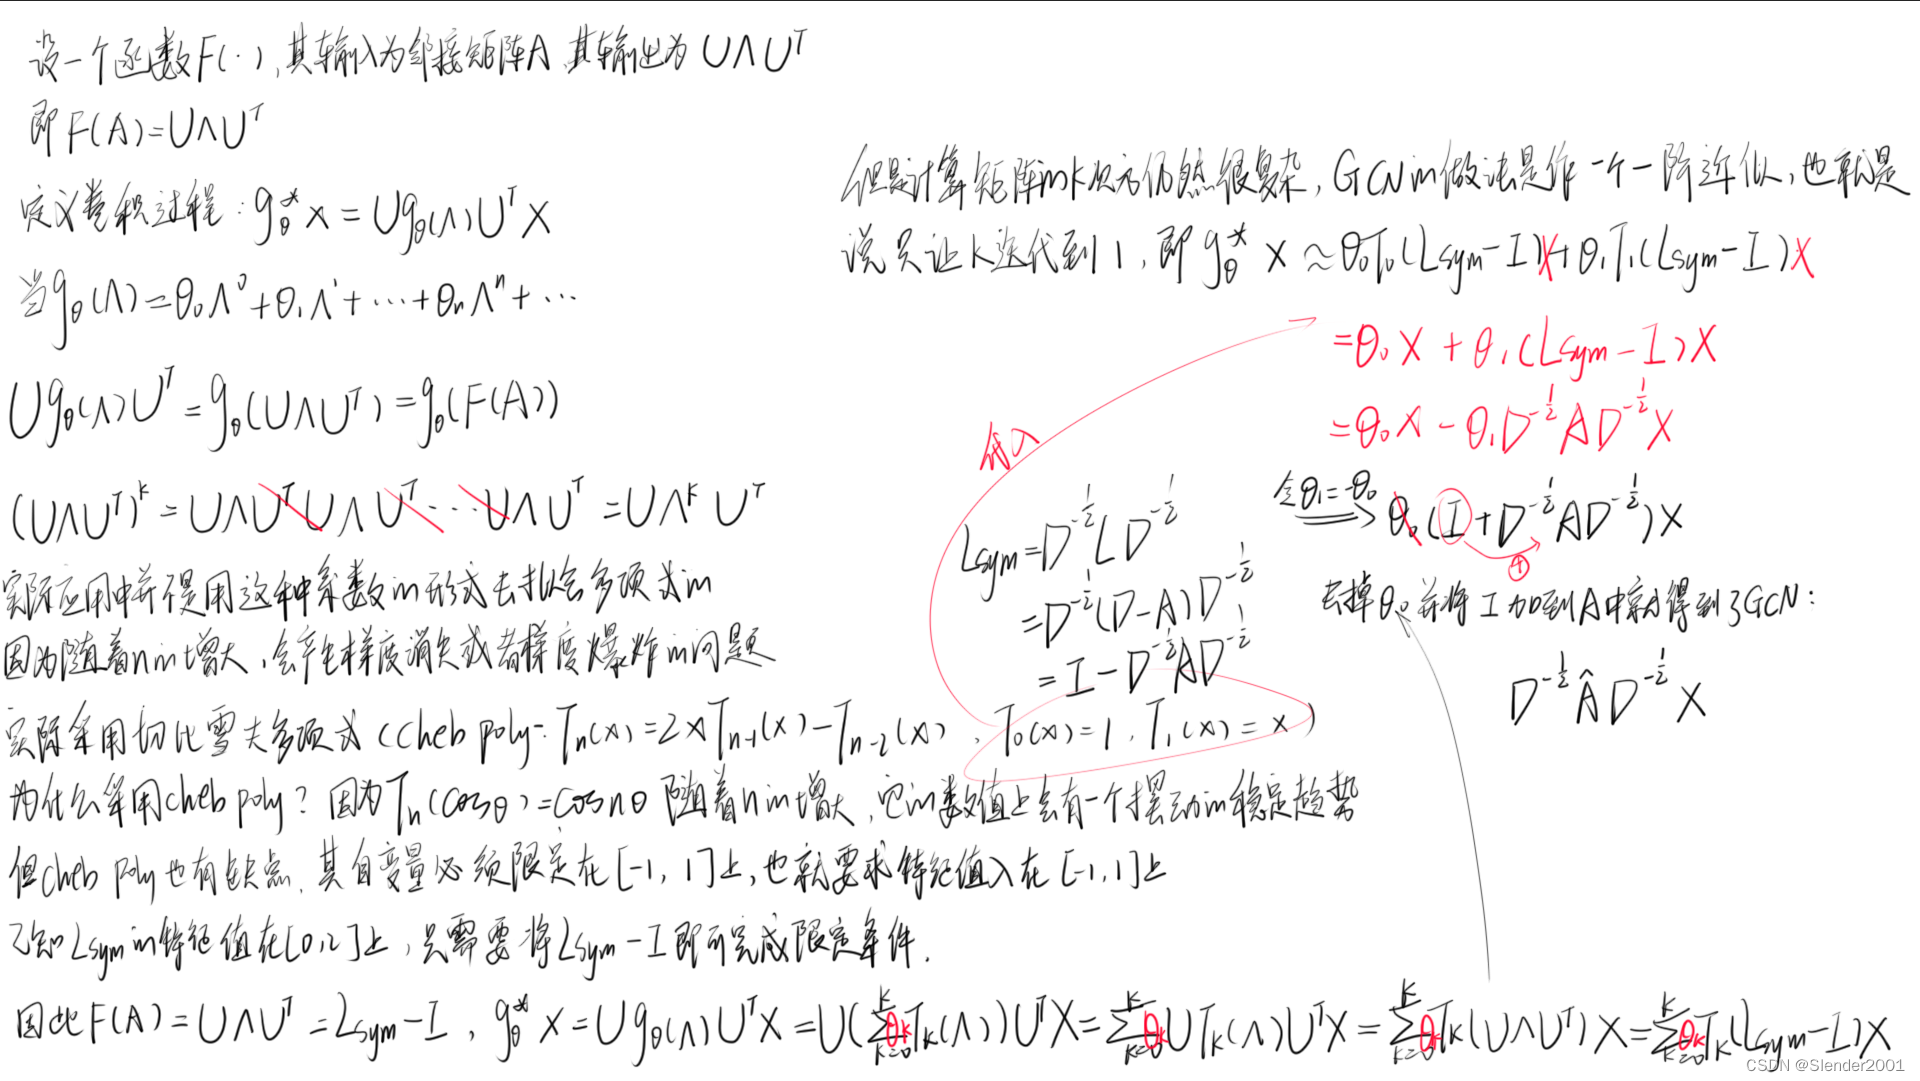 设一个函数F(·),其输入为邻接矩阵A,其输出为 U∧Uᵀ
即 F(A)=U∧Uᵀ
定义卷积过程: g_θ * x = U g_θ(∧) Uᵀ X
当 g_θ(∧)=θ₀∧⁰+θ₁∧¹+⋯+θₙ∧ⁿ+⋯
U g_θ(∧) Uᵀ = g_θ(U∧Uᵀ) = g_θ(F(A))
(U∧Uᵀ)ᵏ = U∧Uᵀ U∧Uᵀ ⋯ U∧Uᵀ = U∧ᵏ Uᵀ
实际应用中并不是用这种系数的形式去拟合多项式的
因为随着n的增大,会产生梯度消失或者梯度爆炸的问题
实际采用切比雪夫多项式 (cheb poly: Tₙ(x)=2xTₙ₋₁(x)-Tₙ₋₂(x), T₀(x)=1, T₁(x)=x)
为什么采用cheb poly? 因为Tₙ(cosθ)=cosnθ 随着n的增大,它的数值上会有一个摆动的稳定趋势
但cheb poly也有缺点,其自变量必须限定在[-1, 1]上,也就要求特征值λ在[-1,1]上
已知Lsym的特征值在[0,2]上,只需要将Lsym-I即可完成限定条件.
因此F(A)=U∧Uᵀ=Lsym-I, g_θ * X = U g_θ(∧) Uᵀ X = U(∑ₖ₌₀ᴷ θₖTₖ(∧))UᵀX = ∑ₖ₌₀ᴷ θₖUTₖ(∧)UᵀX = ∑ₖ₌₀ᴷ θₖTₖ(U∧Uᵀ)X = ∑ₖ₌₀ᴷ θₖTₖ(Lsym-I)X
但是计算矩阵的K次方仍然很复杂,GCN的做法是作一个一阶近似,也就是
说只让K迭代到1, 即 g_θ * X ≈ θ₀T₀(Lsym-I)X+θ₁T₁(Lsym-I)X
=θ₀X + θ₁(Lsym-I)X
=θ₀X - θ₁D^{-1/2}AD^{-1/2}X
令θ₁=-θ₀
θ₀(I+D^{-1/2}AD^{-1/2})X
+
去掉θ₀并将I加到A中就得到了GCN:
D^{-1/2}ÂD^{-1/2}X
代入
Lsym=D^{-1/2}LD^{-1/2}
=D^{-1/2}(D-A)D^{-1/2}
=I-D^{-1/2}AD^{-1/2}
CSDN @Slender2001